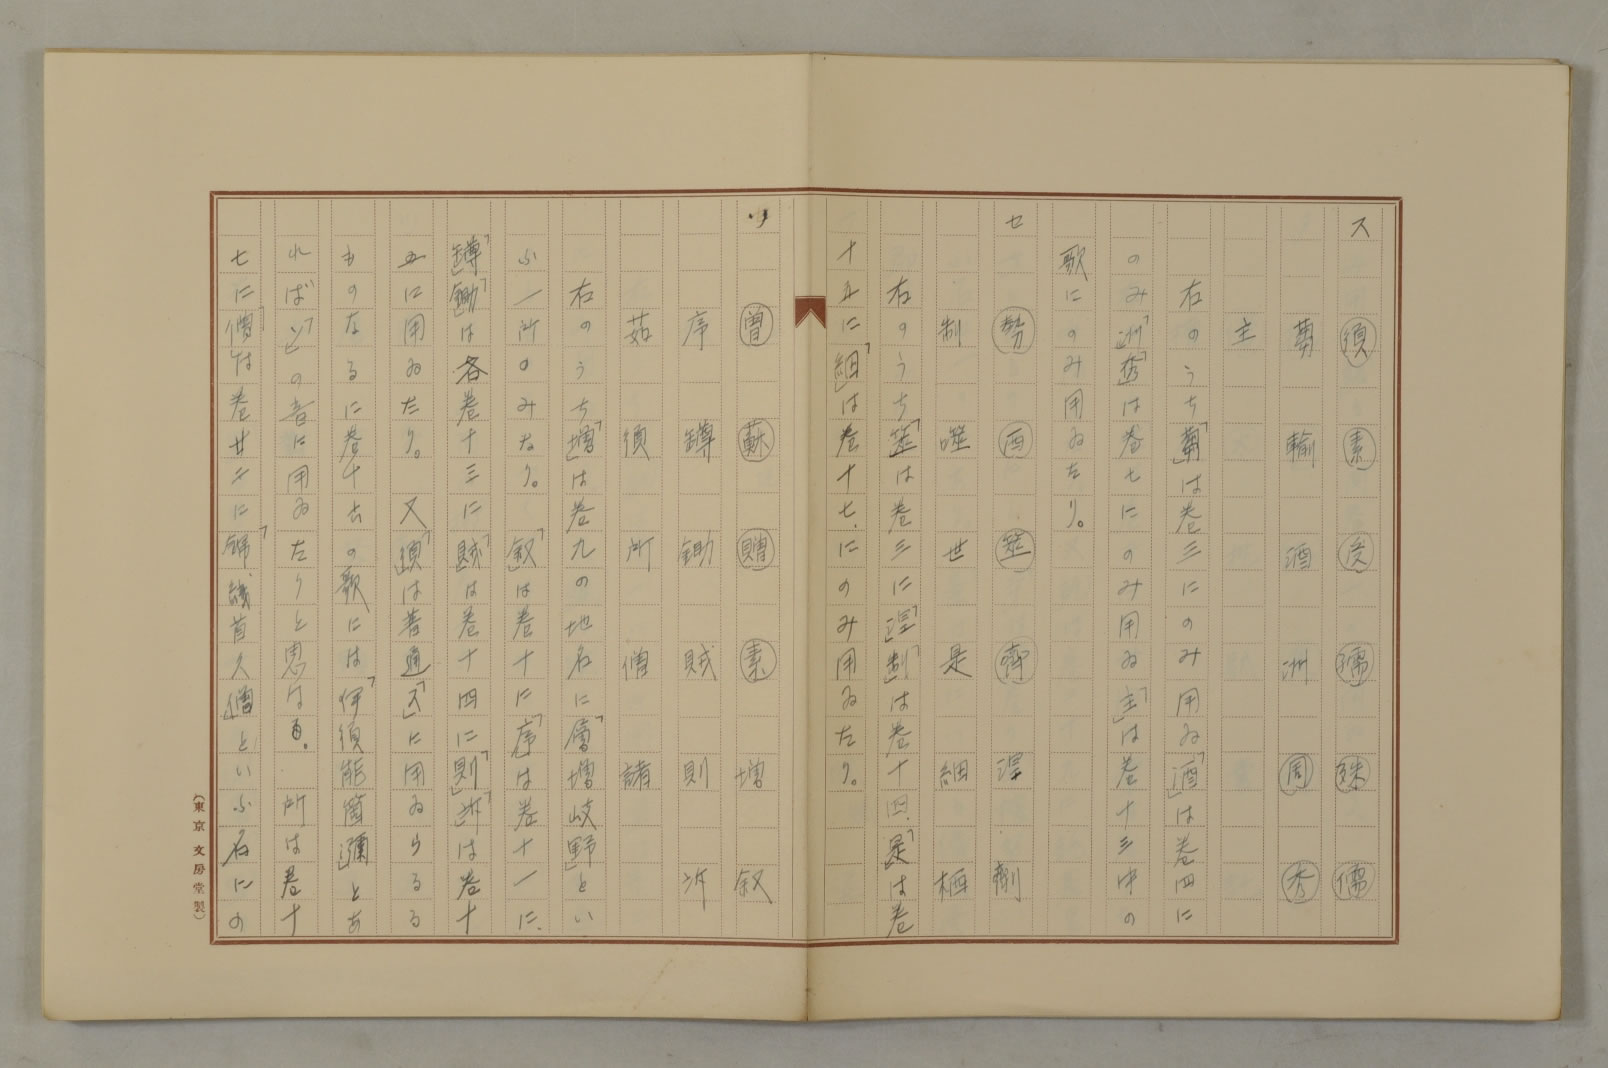 ス
須 素 殳 孺 殊 儒
蒭 輸 酒 洲 周 秀
主
右のうち「蒭」は巻三にのみ用ゐ「酒」は巻四に
のみ「洲」「秀」は巻七にのみ用ゐ「主」は巻十三中の
歌にのみ用ゐたり。
セ
勢 西 筮 齊 淫 劑
制 噬 世 是 細 栖
右のうち「筮」は巻三に「淫」「制」は巻十四、「是」は巻
十五に「細」は巻十七、にのみ用ゐたり。
ソ
曾 蘇 贈 素 増 叙
序 鐏 鋤 賊 則 泝
茹 須 所 僧 諸
右のうち「増」は巻九の地名に「層増岐野」とい
ふ一所のみなり。「叙」は巻十に「序」は巻十一に、
「鐏」「鋤」は各巻十三に「賊」は巻十四に「則」「泝」は巻十
五に用ゐたり。又「須」は普通「ス」に用ゐらるる
ものなるに巻十五の歌には「伊須能箇彌」とあ
れば「ソ」の音に用ゐたりと思はる。所は巻十
七に「僧」は巻廿二に「錦織首久僧」といふ名にの
(東京 文房堂製)